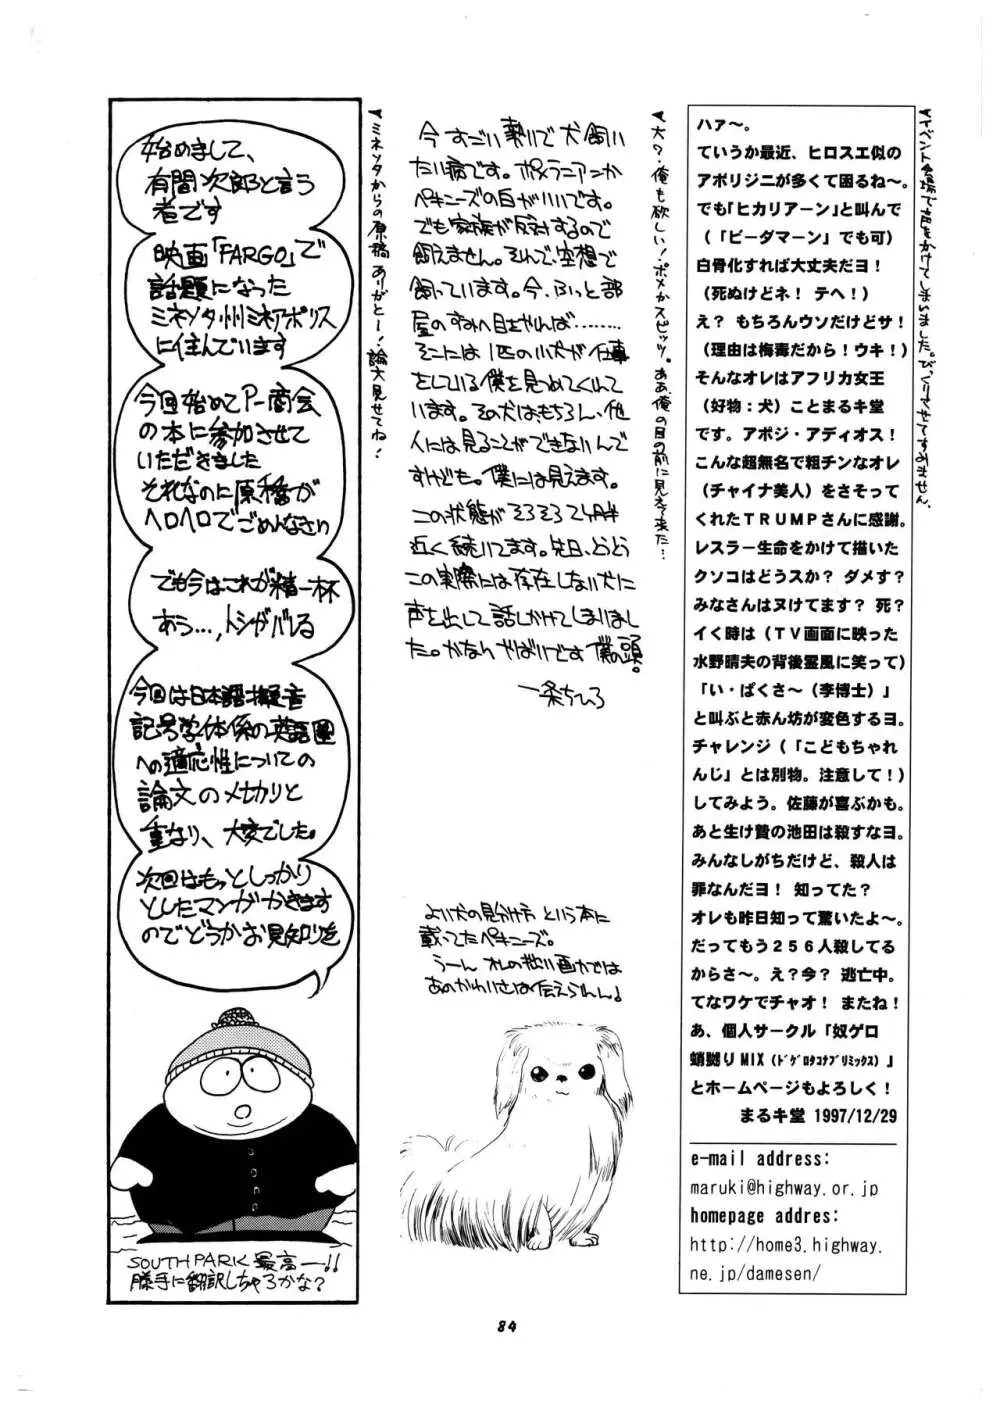 ハァ～。
ていうか最近、ヒロスエ似の
アボリジニが多くて困るね～。
でも「ヒカリアーン」と叫んで
（「ビーダマーン」でも可）
白骨化すれば大丈夫だヨ！
（死ぬけどネ！ テヘ！）
え？ もちろんウソだけどサ！
（理由は梅毒だから！ウキ！）
そんなオレはアフリカ女王
（好物：犬）ことまるキ堂
です。アボジ・アディオス！
こんな超無名で粗チンなオレ
（チャイナ美人）をさそって
くれたＴＲＵＭＰさんに感謝。
レスラー生命をかけて描いた
クソコはどうスか？ ダメす？
みなさんはヌけてます？ 死？
イく時は（ＴＶ画面に映った
水野晴夫の背後霊風に笑って）
「い・ぱくさ～（李博士）」
と叫ぶと赤ん坊が変色するヨ。
チャレンジ（「こどもちゃれ
んじ」とは別物。注意して！）
してみよう。佐藤が喜ぶかも。
あと生け贄の池田は殺すなヨ。
みんなしがちだけど、殺人は
罪なんだヨ！ 知ってた？
オレも昨日知って驚いたよ～。
だってもう２５６人殺してる
からさ～。え？今？ 逃亡中。
てなワケでチャオ！ またね！
あ、個人サークル「奴ゲロ
蛸嬲りMIX（ﾄﾞｹﾞﾛﾀｺﾅﾌﾞﾘﾐｯｸｽ）」
とホームページもよろしく！
まるキ堂 1997/12/29
e-mail address:
maruki@highway.or.jp
homepage addres:
http://home3.highway.
ne.jp/damesen/
▼イベント会場で声をかけてしまいました。びっくりさせてすみません。
▼犬？俺も欲しい！ポメかスピッツ。ああ、俺の目の前に見えて来た…
今すごい勢いで犬飼い
たい病です。ポメラニアンか
ペキニーズの白がいいです。
でも家族が反対するので
飼えません。それで、空想で
飼っています。今、ふっと部
屋のすみへ目をやれば………
そこには1匹の小犬が仕事
をしている僕を見つめてくれて
います。その犬は、もちろん、他
人には見ることができないんで
すけども。僕には見えます。
この状態がそろそろ2ヶ月半
近く続いてます。先日、とうとう
この実際には存在しない犬に
声を出して話しかけてしまいまし
た。かなりやばいです 僕の頭。
一条ちひろ
よい犬の見分け方 という本に
載ってたペキニーズ。
うーん オレの拙い画力では
あのかわいさは伝えられん♪
▼ミネソタからの原稿ありがとー！論文見せてね！
始めまして、
有間次郎と言う
者です
映画「FARGO」で
話題になった
ミネソタ州ミネアポリス
に住んでいます
今回始めてアー商会
の本に参加させて
いただきました
それなのに原稿が
ヘロヘロでごめんなさい
でも今はこれが精一杯
あう…,トシがバレる
今回は日本語擬音
記号学体係の英語圏
への適応性についての
論文のメ切りと
重なり、大変でした。
次回はもっとしっかり
としたマンガかきます
のでどうかお見知りを
SOUTH PARK 最高ー!!
勝手に翻訳しちゃろかな？
84